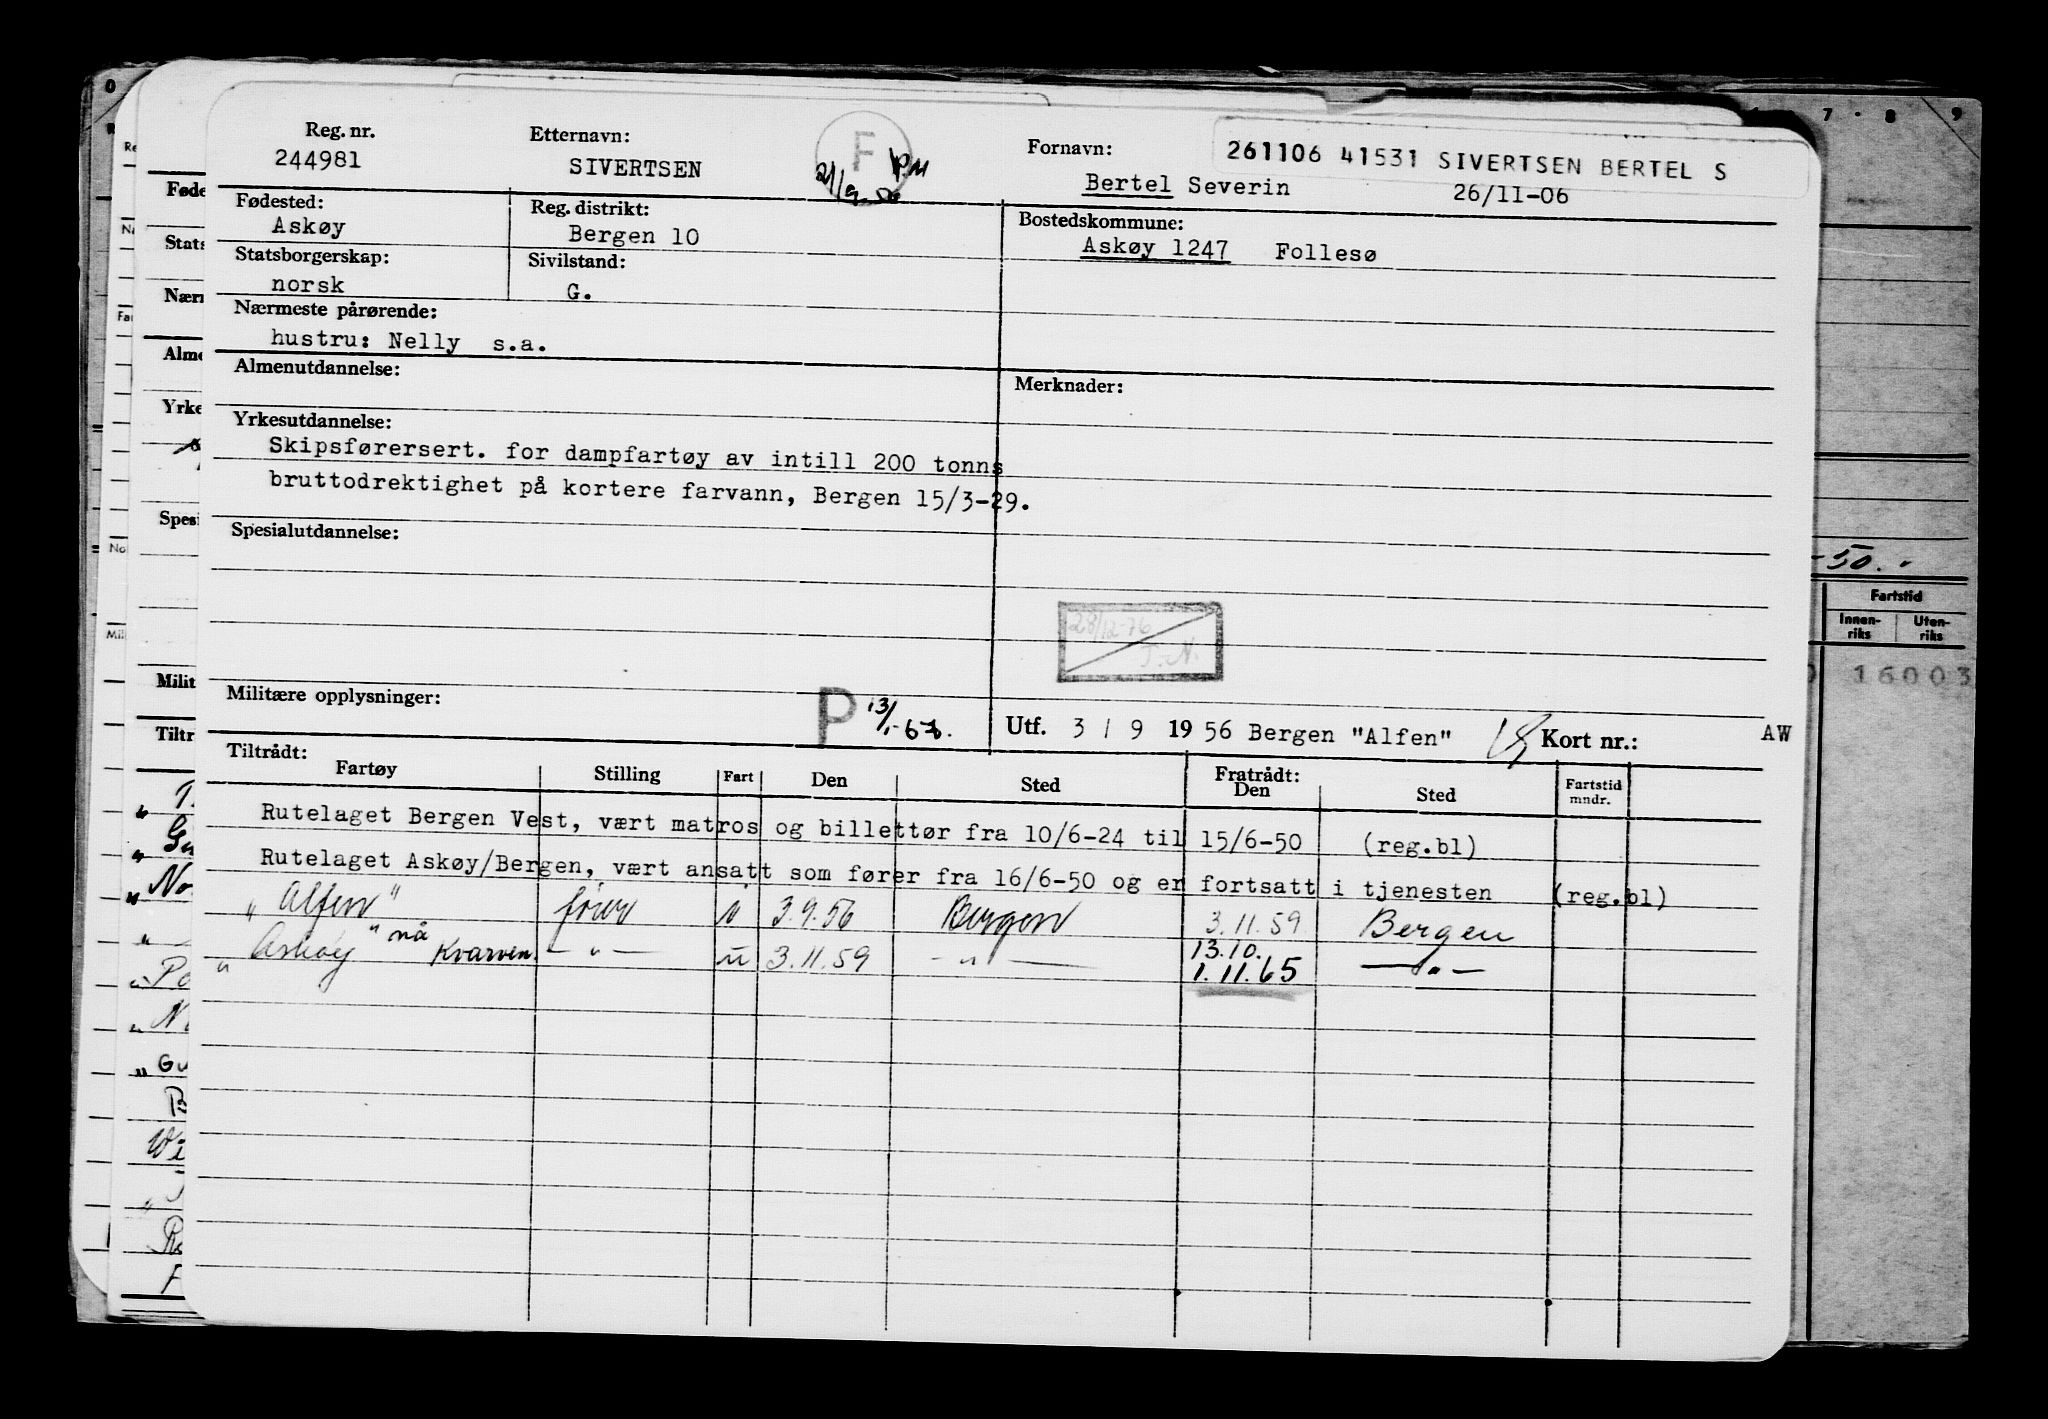 Reg. nr. Etternavn: F Fornavn: 261106 41531 SIVERTSEN BERTEL S
244981 SIVERTSEN Bertel Severin 26/11-06
Fødested: Reg. distrikt: Bostedskommune:
Askøy Bergen 10 Askøy 1247 Follesø
Statsborgerskap: Sivilstand:
norsk G.
Nærmeste pårørende:
hustru: Nelly s.a.
Almenutdannelse: Merknader:
Yrkesutdannelse:
Skipsførersert. for dampfartøy av intill 200 tonns
bruttodrektighet på kortere farvann, Bergen 15/3-29.
Spesialutdannelse:
28/12-76
T.N.
Militære opplysninger: P Utf. 3 / 9 19 56 Bergen "Alfen" Kort nr.: AW
Tiltrådt: Fratrådt:
Fartøy Stilling Fart Den Sted Den Sted Fartstid mndr.
Rutelaget Bergen Vest, vært matros og billettør fra 10/6-24 til 15/6-50 (reg.bl)
Rutelaget Askøy/Bergen, vært ansatt som fører fra 16/6-50 og er fortsatt i tjenesten (reg.bl)
"Alfen" fører 3.9.56 Bergen 3.11.59 Bergen
"Askøy" nå Kvarven - " - 3.11.59 - " - 13.10.
1.11.65 - " -
Føde
Stats
Nærr
Alme
Yrke
Spesi
Milit
Tiltr
7 . 8 9
-50.-
Fartstid
Innen-riks Uten-riks
16003